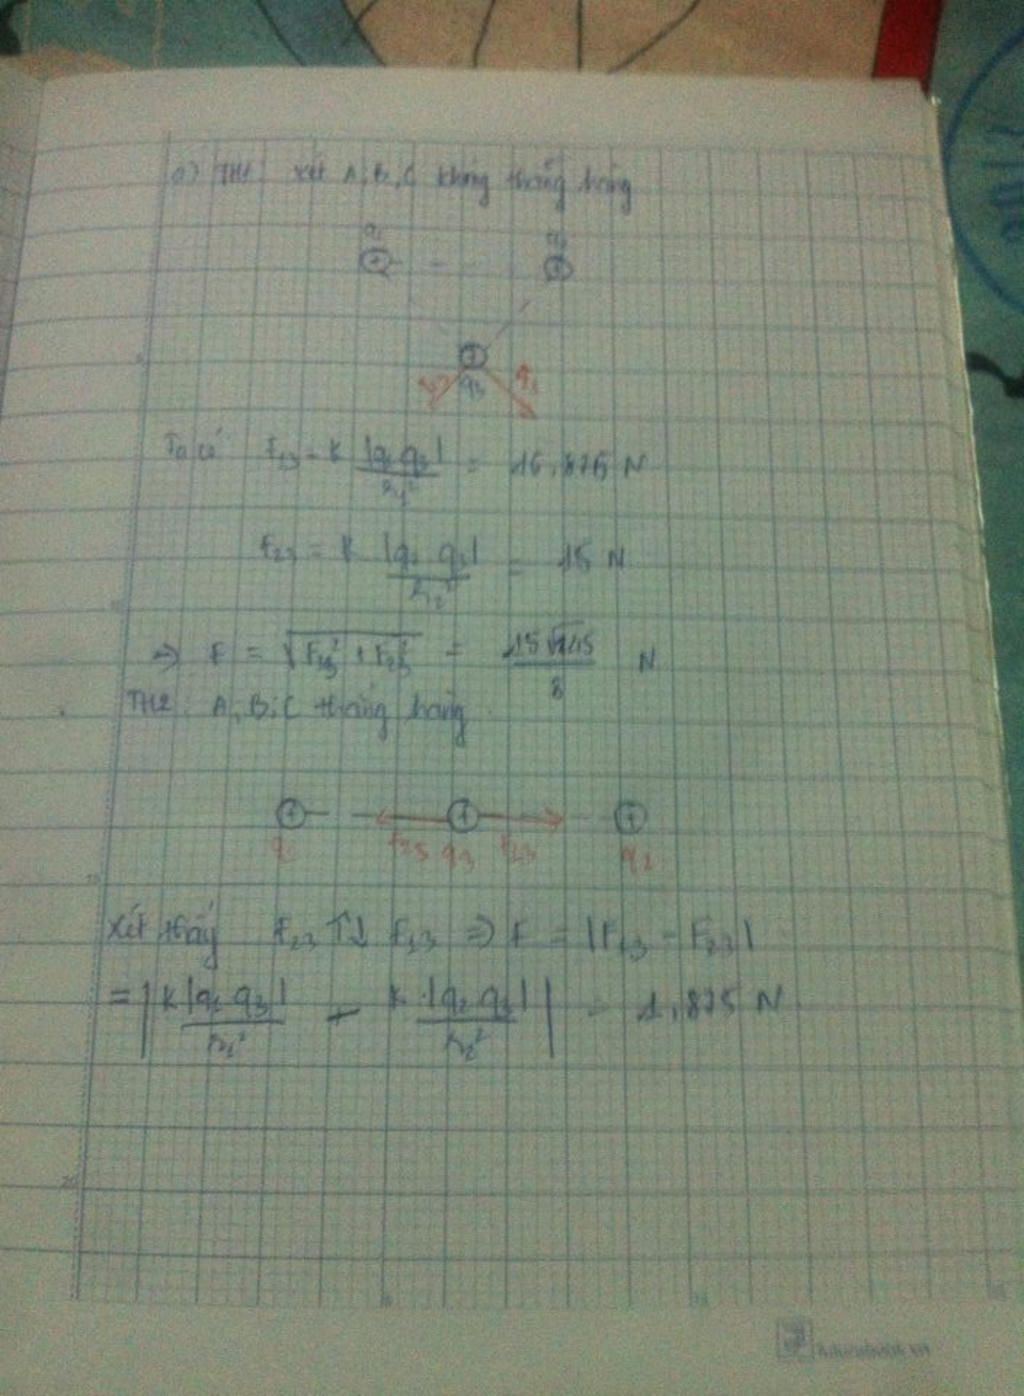 a) TH1: Xét A, B, C không thẳng hàng
q₁
+ +
+
q₃
Ta có: F₁₃ = k |q₁ q₃| / r₁² = 16,875 N
F₂₃ = k |q₂ q₃| / r₂² = 15 N
=> F = √(F₁₃² + F₂₃²) = 15√145 / 8 N
TH2: A, B, C thẳng hàng.
+ + +
q₁ F₂₃ q₃ F₁₃ q₂
Xét thấy F₂₃ ↑↓ F₁₃ => F = |F₁₃ - F₂₃|
= | k |q₁ q₃| / r₁² - k |q₂ q₃| / r₂² | = 1,875 N